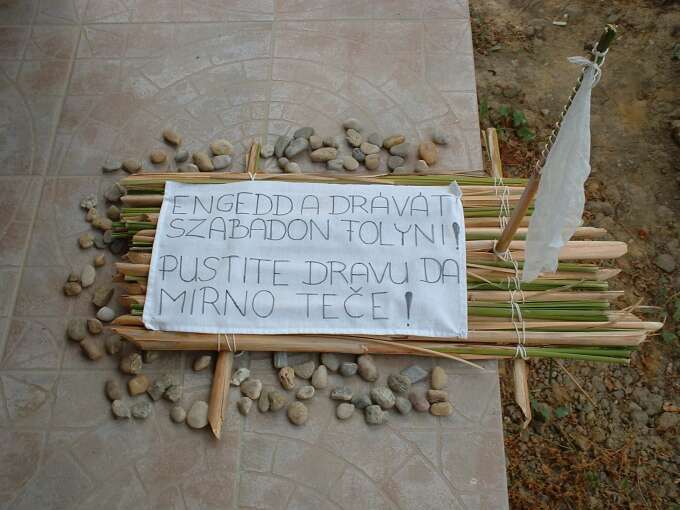 ENGEDD A DRÁVÁT
SZABADON FOLYNI!
PUSTITE DRAVU DA
MIRNO TEČE!